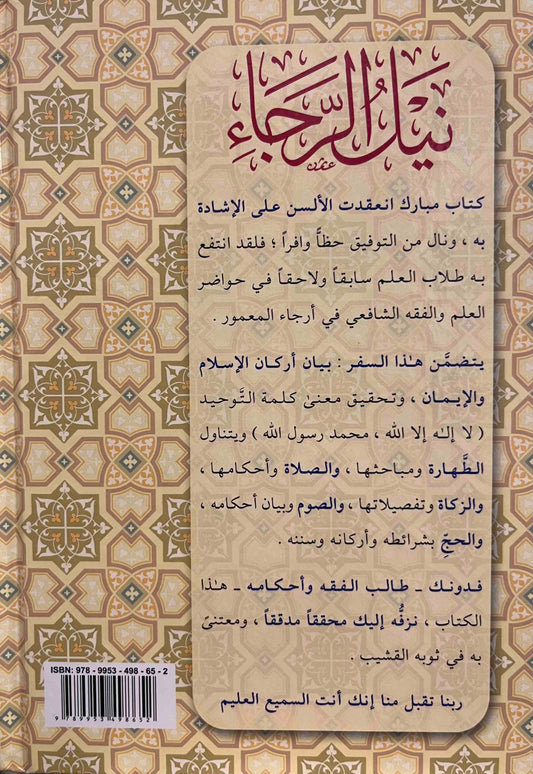 نيل الرجاء
كتاب مبارك انعقدت الألسن على الإشادة
به ، ونال من التوفيق حظاً وافراً ؛ فلقد انتفع
به طلاب العلم سابقاً ولاحقاً في حواضر
العلم والفقه الشافعي في أرجاء المعمور .
يتضمَّن هٰذا السفر : بيان أركان الإسلام
والإيمان ، وتحقيق معنىٰ كلمة التَّوحيد
( لا إلٰه إلا الله ، محمد رسول الله ) ويتناول
الطَّهارة ومباحثها ، والصلاة وأحكامها ،
والزكاة وتفصيلاتها ، والصوم وبيان أحكامه ،
والحجّ بشرائطه وأركانه وسننه .
فدونك - طالب الفقه وأحكامه - هٰذا
الكتاب ، نزفُّه إليك محققاً مدققاً ، ومعتنىً
به في ثوبه القشيب .
ربنا تقبل منا إنك أنت السميع العليم
ISBN: 978 - 9953 - 498 - 65 - 2
9 789953 498652